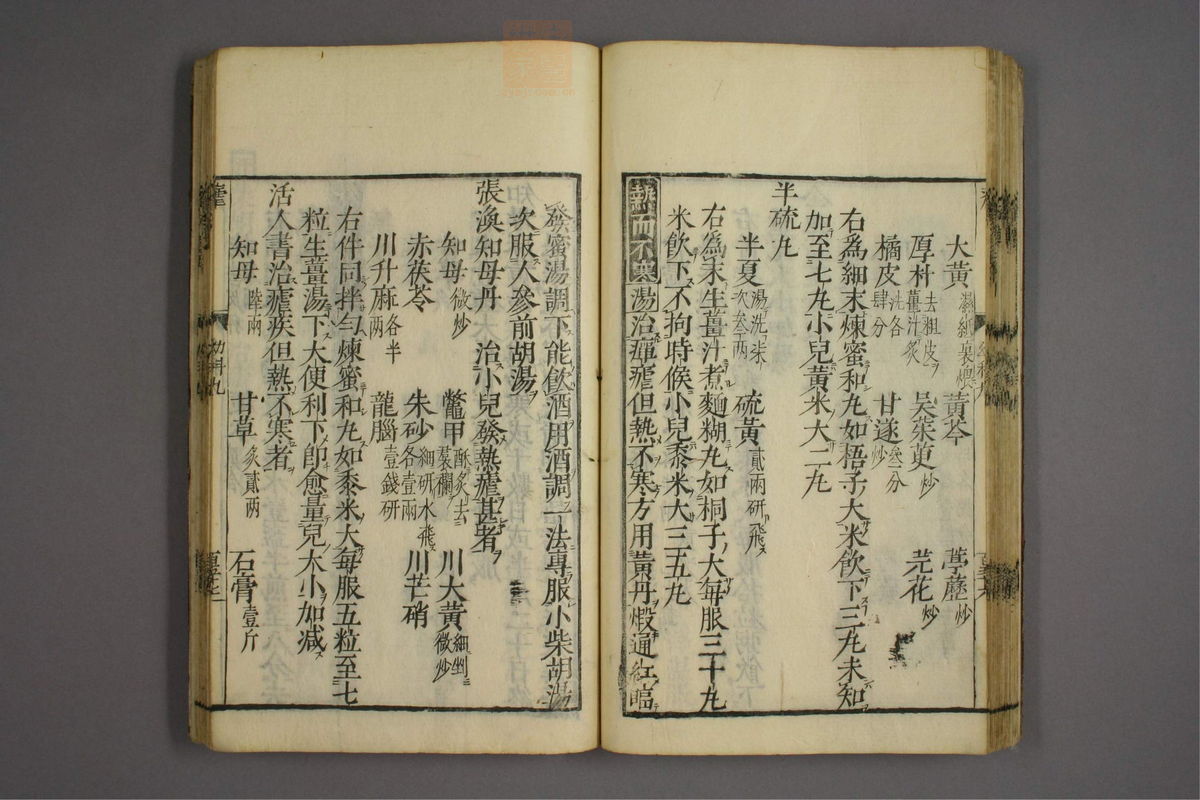 大黄濕紙裹煨 黄芩 葶藶炒
厚朴去粗皮薑汁炙 吴茱萸炒 芫花炒
橘皮洗各肆分 甘遂叁分炒
右為細末煉蜜和丸如梧子大米飲下三丸未知
加至七丸小兒黄米大二丸
半硫丸
半夏湯洗柒次叁兩 硫黄貳兩研飛
右為末生薑汁煮麵糊丸如桐子大每服三十丸
米飲下不拘時候小兒黍米大三五丸
熱而不寒湯治癉瘧但熱不寒方用黄丹煅通紅臨
發蜜湯調下能飲酒用酒調一法專服小柴胡湯
次服人參前胡湯
張渙知母丹 治小兒發熱瘧甚者
知母微炒 鱉甲酥炙去裙襴 川大黄細剉微炒
赤茯苓 朱砂細研水飛各壹兩 川芒硝
川升麻各半兩 龍腦壹錢研
右件同拌勻煉蜜和丸如黍米大每服五粒至七
粒生薑湯下大便利下即愈量兒大小加减
活人書治瘧疾但熱不寒者
知母陸兩 甘草炙貳兩 石膏壹斤
幼科九